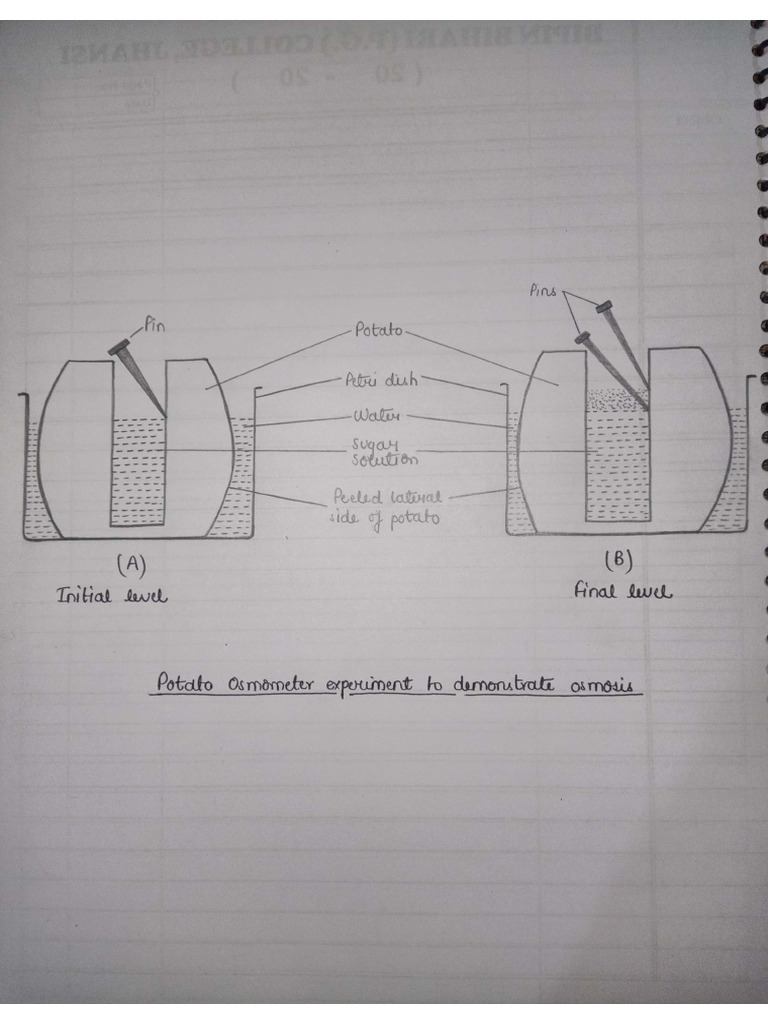 BIPIN BIHARI (P.G.) COLLEGE, JHANSI
( 20 - 20 )
Pins
Pin
Potato
Petri dish
Water
Sugar
solution
Peeled lateral
side of potato
(A)
(B)
Initial level
Final level
Potato Osmometer experiment to demonstrate osmosis